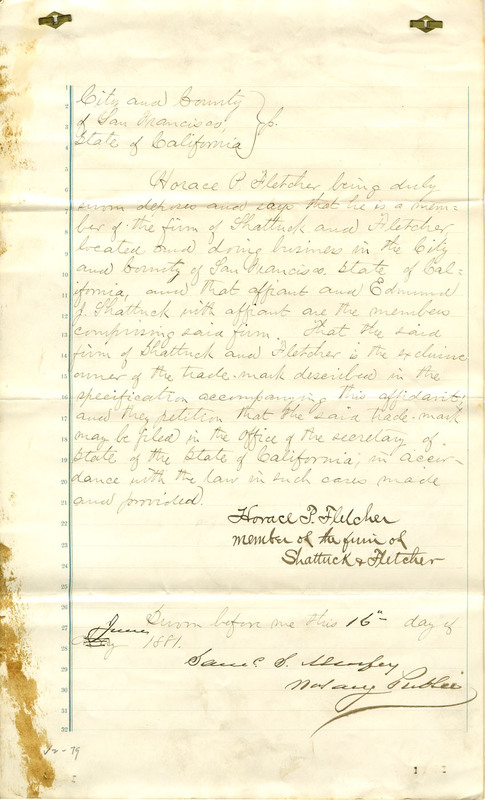 City and County
of San Francisco, } ss.
State of California
Horace P. Fletcher being duly
sworn deposes and says that he is a mem=
ber of the firm of Shattuck and Fletcher
located and doing business in the City
and County of San Francisco. State of Cal=
ifornia, and that affiant and Edmund
J. Shattuck with affiant are the members
comprising said firm. That the said
firm of Shattuck and Fletcher is the exclusive
owner of the trade-mark described in the
specification accompanying this affidavit;
and they petition that the said trade-mark
may be filed in the office of the secretary of
State of the State of California, in accor-
dance with the law in such cases made
and provided.
Horace P. Fletcher
member of the firm of
Shattuck & Fletcher
Sworn before me this 16th day of
June 1881.
Saml S. Murfey
Notary Public
1
2
3
4
5
6
7
8
9
10
11
12
13
14
15
16
17
18
19
20
21
22
23
24
25
26
27
28
29
30
31
32